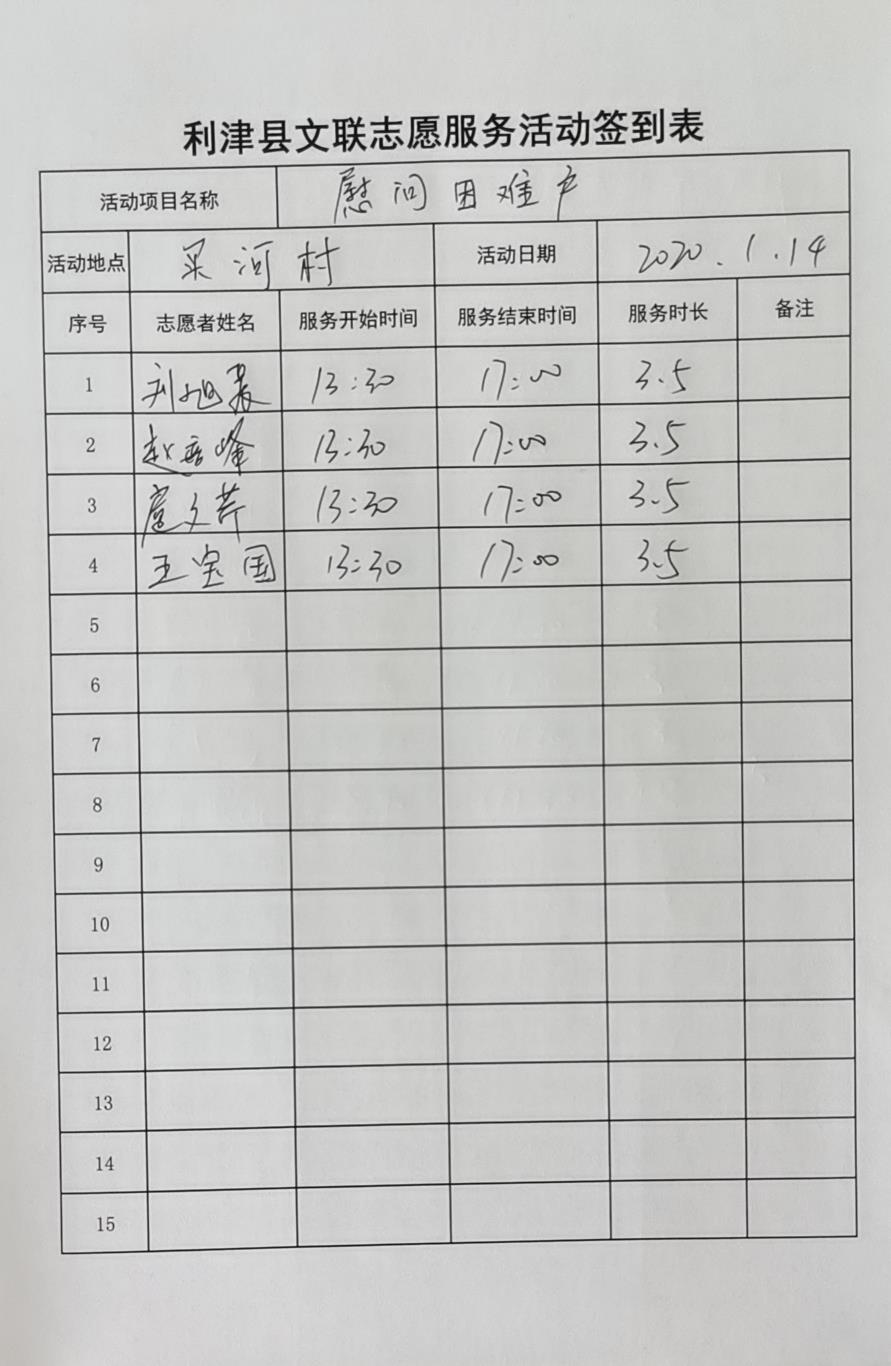 利津县文联志愿服务活动签到表
活动项目名称 慰问困难户
活动地点 采河村 活动日期 2020.1.14
序号 志愿者姓名 服务开始时间 服务结束时间 服务时长 备注
1 刘旭 13:30 17:00 3.5
2 赵岳峰 13:30 17:00 3.5
3 扈文芹 13:30 17:00 3.5
4 王宝国 13:30 17:00 3.5
5
6
7
8
9
10
11
12
13
14
15